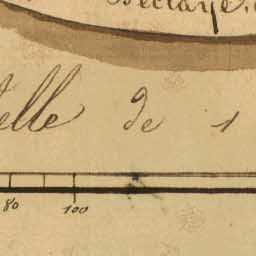 elle de 1
80 100